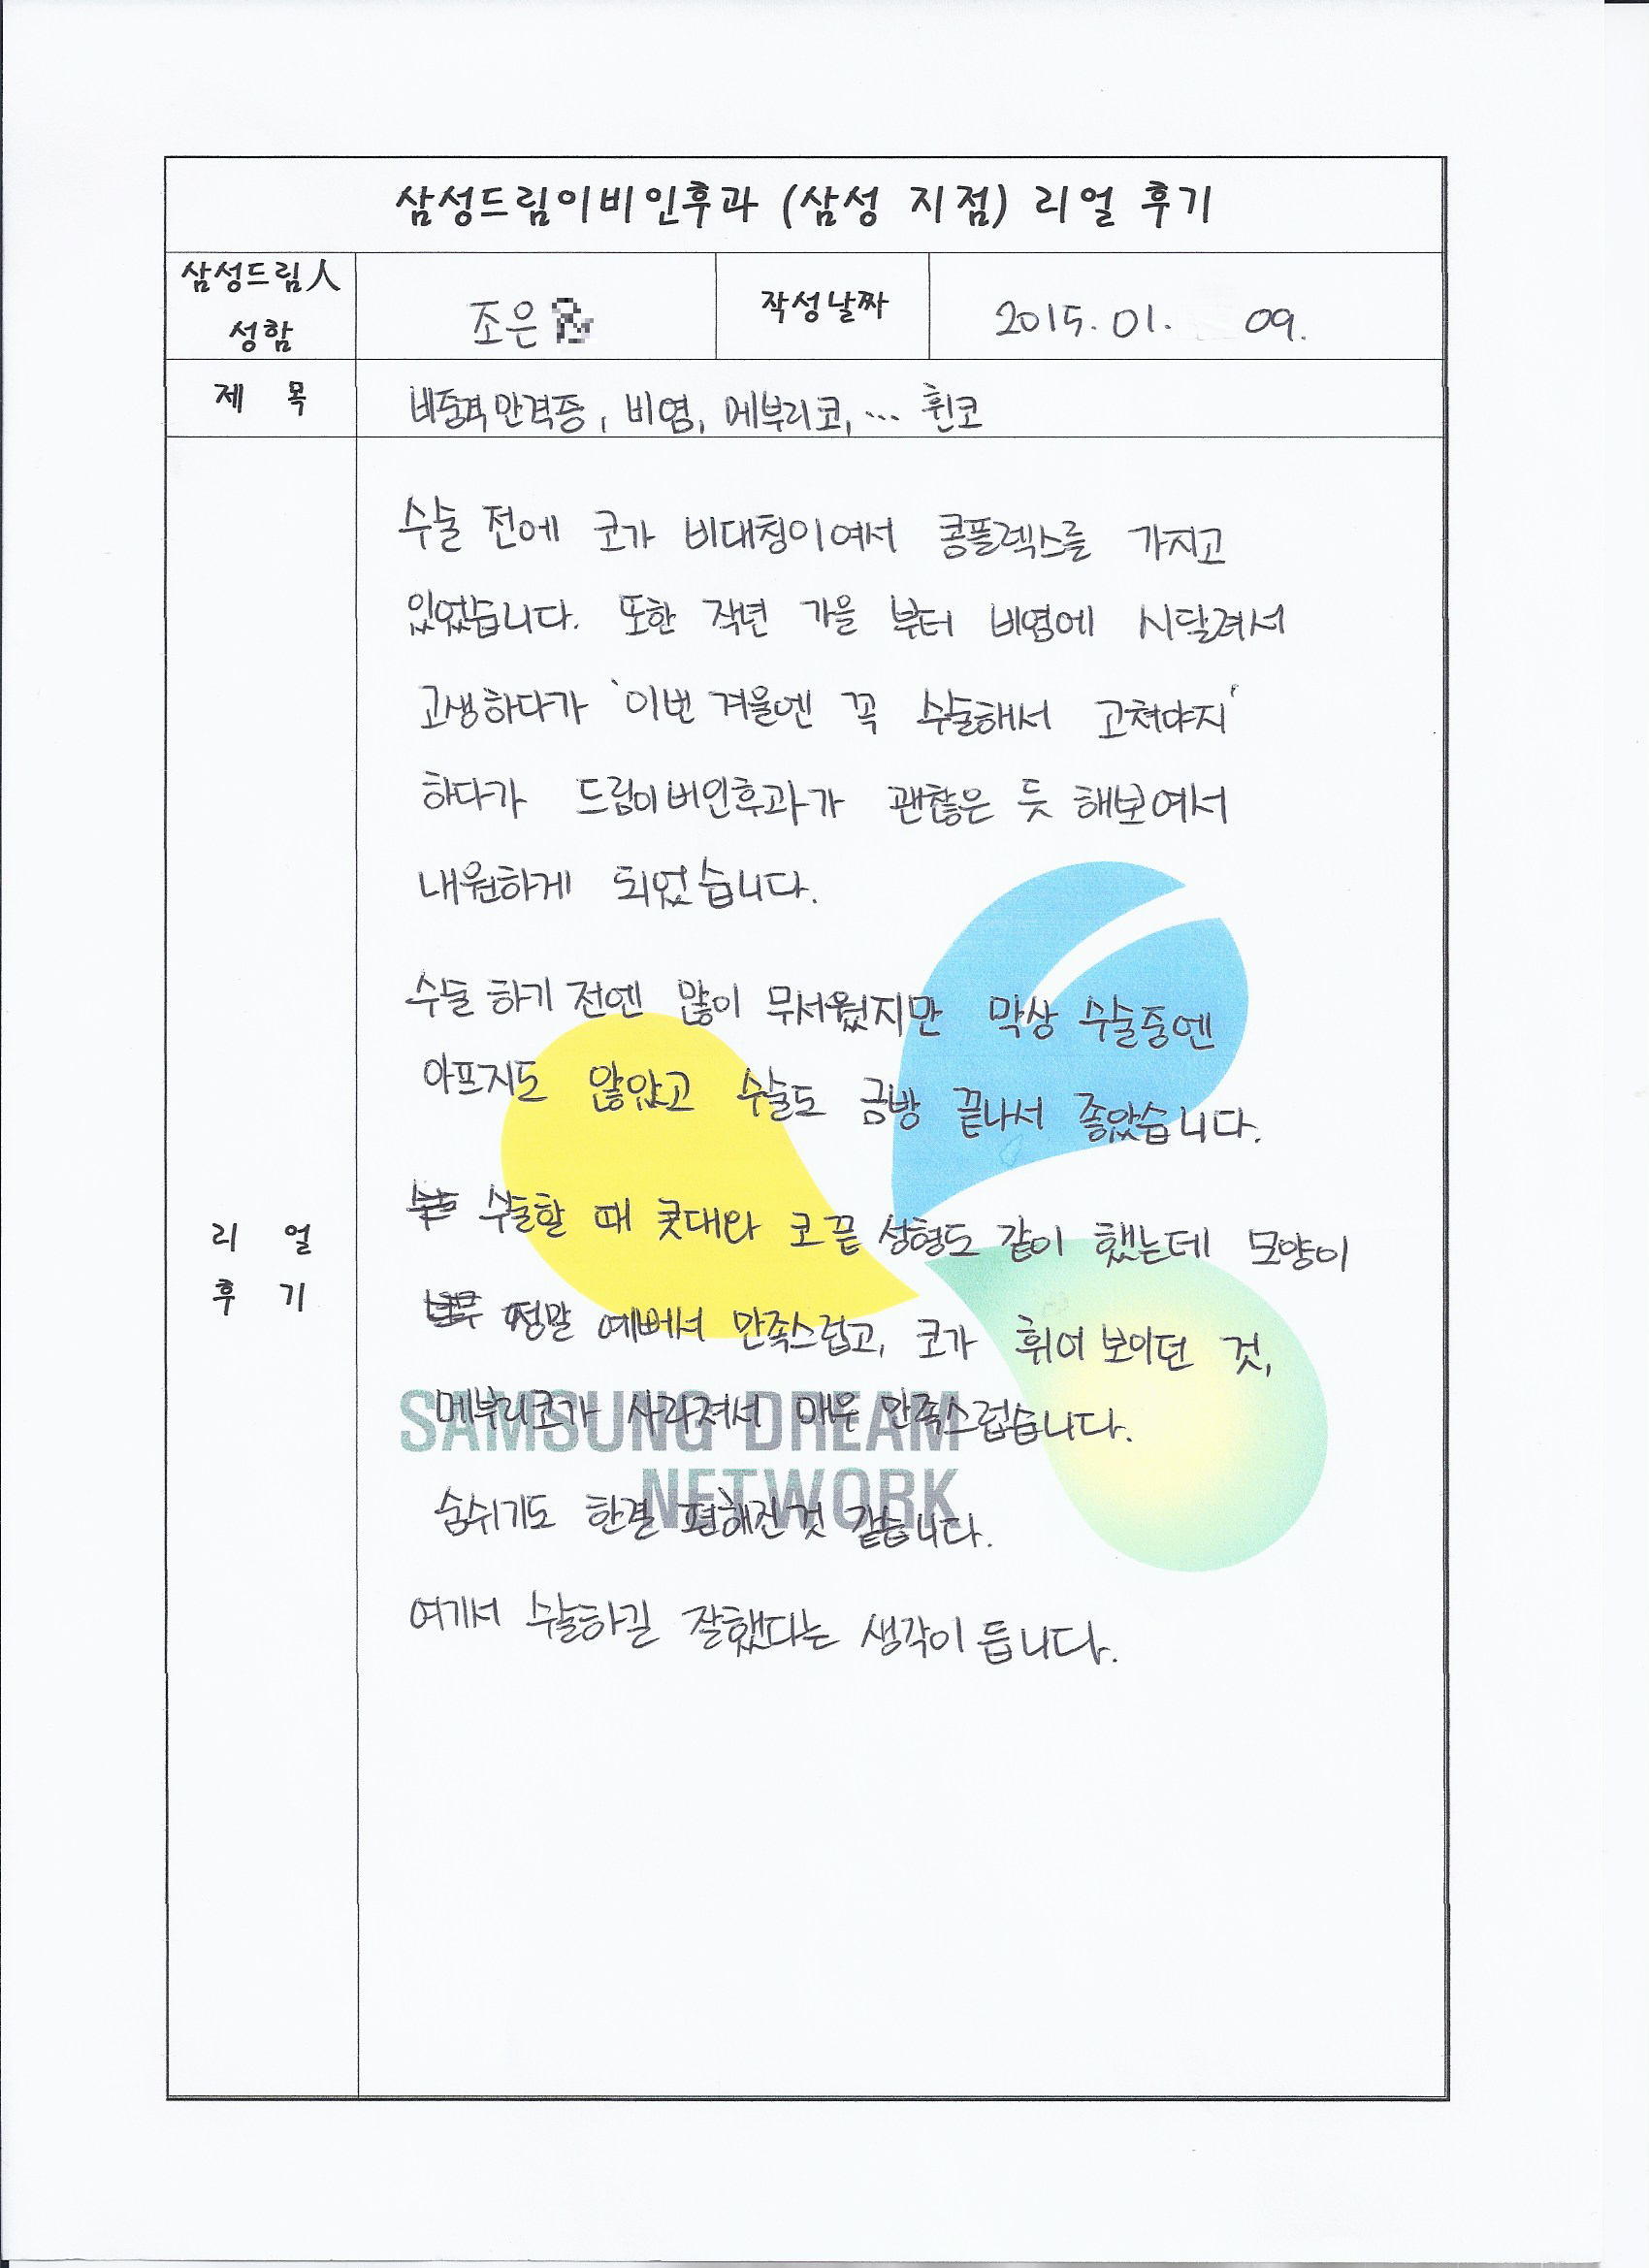 삼성드림이비인후과 (삼성 지점) 리얼 후기
삼성드림人
성함
조은
작성날짜
2015. 01. 09.
제 목
비염, 메부리코, … 휜코
수술 전에 코가 비대칭이여서 콩플렉스를 가지고
있었습니다. 또한 작년 가을 부터 비염에 시달려서
고생하다가 '이번 겨울엔 꼭 수술해서 고쳐야지'
하다가 드림이비인후과가 괜찮은 듯 해보여서
내원하게 되었습니다.
수술 하기 전엔 많이 무서웠지만 막상 수술중엔
아프지도 않았고 수술도 금방 끝나서 좋았습니다.
수술할 때 콧대와 코끝 성형도 같이 했는데 모양이
정말 예뻐서 만족스럽고, 코가 휘어 보이던 것,
메부리코가 사라져서 매우 만족스럽습니다.
숨쉬기도 한결 편해진것 같습니다.
여기서 수술하길 잘했다는 생각이 듭니다.
리 얼
후 기
SAMSUNG DREAM
NETWORK